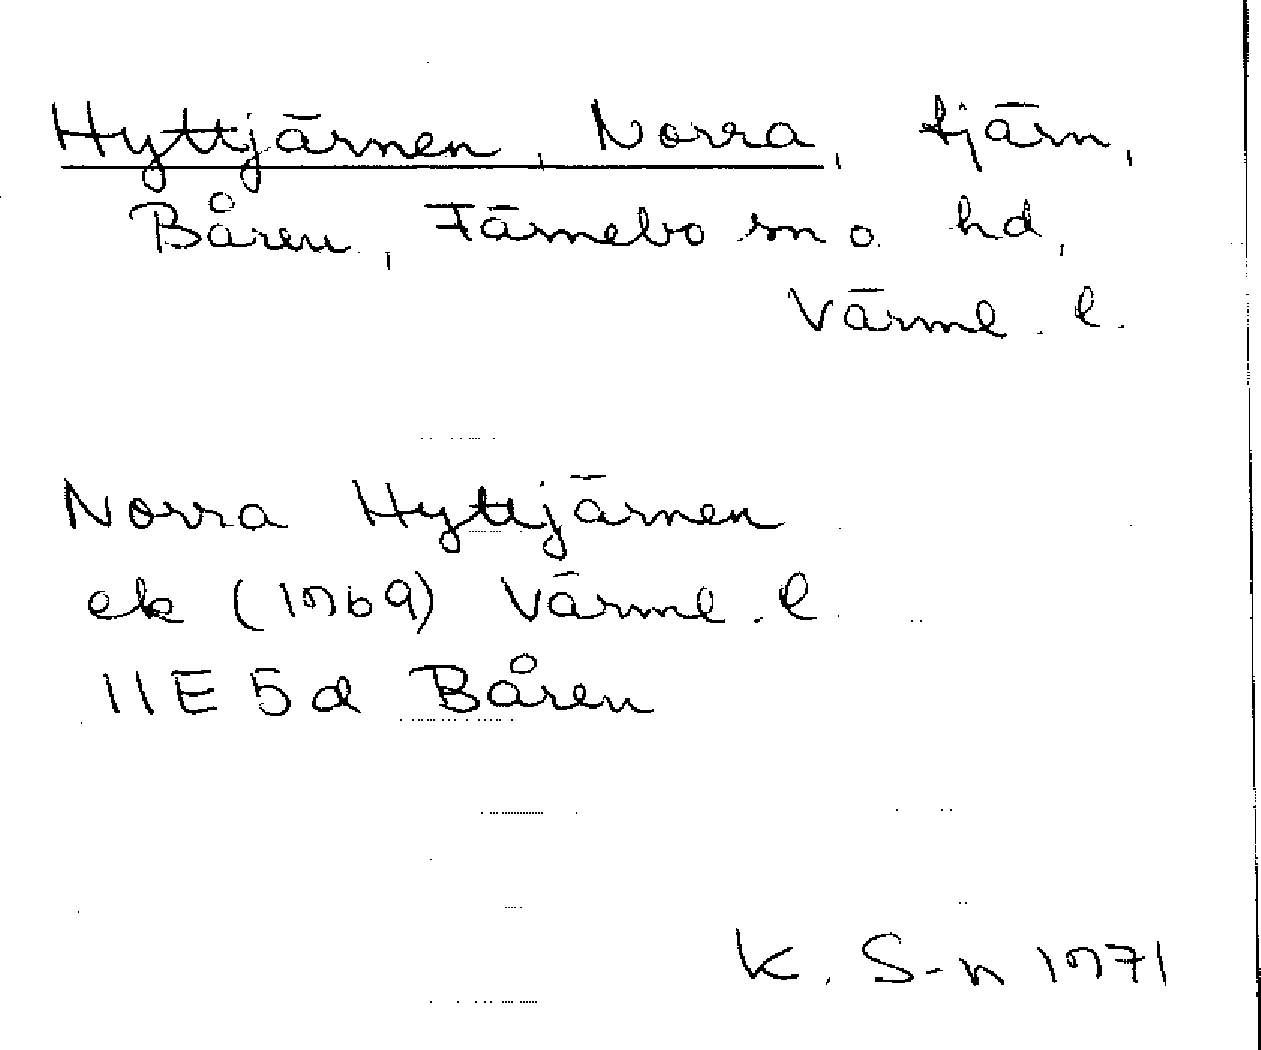 Hyttjärnen, Norra, tjärn,
Båren, Färnebo sn o. hd,
Värml. l.
Norra Hyttjärnen
ek (1969) Värml. l
11E 5d Båren
K. S-n 1971